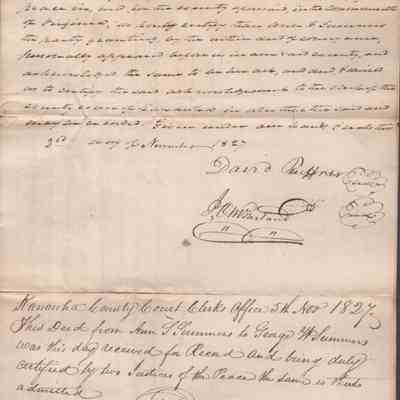 peace in, and for the county aforesaid, in the commonwealth
of Virginia, do hereby certify that Ann S Summers
the party granting by the within deed of conveyance,
personally appeared before us in our said county, and
acknowledged the same to be her act, and deed & desired
us to certify the said acknowledgement to the clerk of the
county court of Kanawha in order that the said deed
may be recorded. Given under our hands & seals this
2nd day of November 1827
David Ruffner
Kanawha County Court Clerks Office 5th Nov 1827.
This Deed from Ann S Summers to George W Summers
was this day received for Record and being duly
certified by two Justices of the Peace the same is
admitted